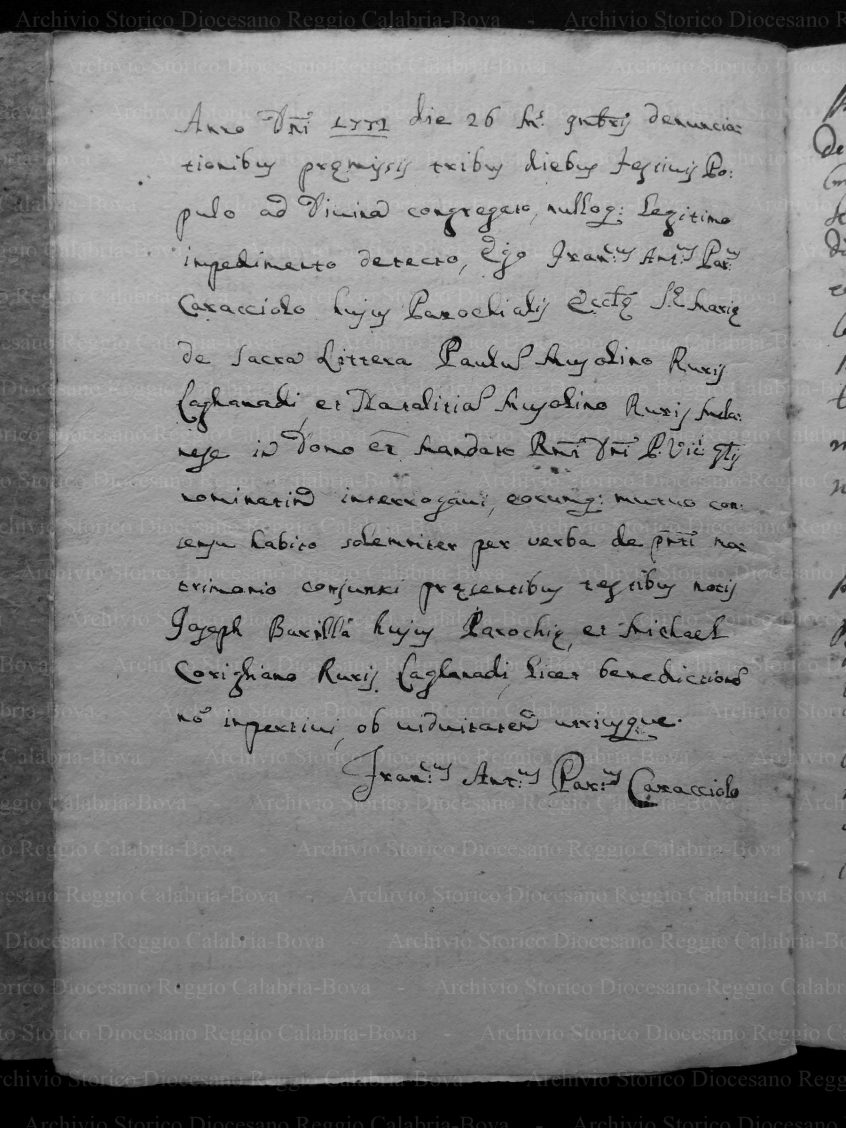 Anno Dñi 1771 die 26 Ms. 9mbris denuncia:
tionibus pręmissis tribus diebus festivis Po:
pulo ad Divina congregato, nulloq: legitimo
impedimento detecto, Ego Fran:cus Ant:us Par:us
Caracciolo hujus Parochialis Eccłę S.ę Marię
de Sacra Littera Paulus Musolino Ruris
Caghanadi et Natalitia Musolino Ruris
in Domo et mandato Rmi Dñi P. Vic
nominatim interrogavi, eorumq: mutuo con:
sensu habito solemniter per verba de pñti ma:
trimonio conjunxi pręsentibus testibus notis
Joseph Barillà hujus Parochię, et Michael
Corigliano Ruris Caglanadi, licet benedictione
no impertivi, ob viduitatem utriusque.
Fran:cus Ant:us Par:us Caracciolo
Archivio Storico Diocesano Reggio Calabria-Bova